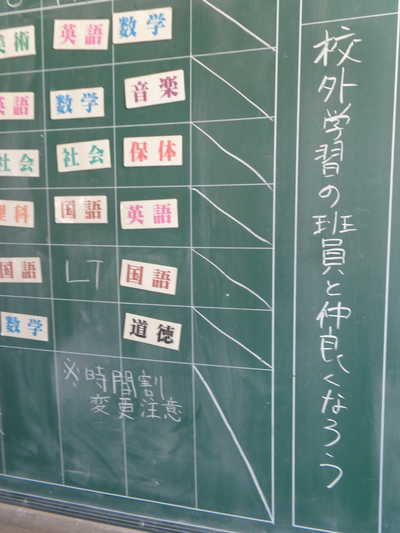 校外学習の班員と仲良くなろう
美術 英語 数学
英語 数学 音楽
社会 社会 保体
理科 国語 英語
国語 LT 国語
数学 道徳
※時間割
変更注意